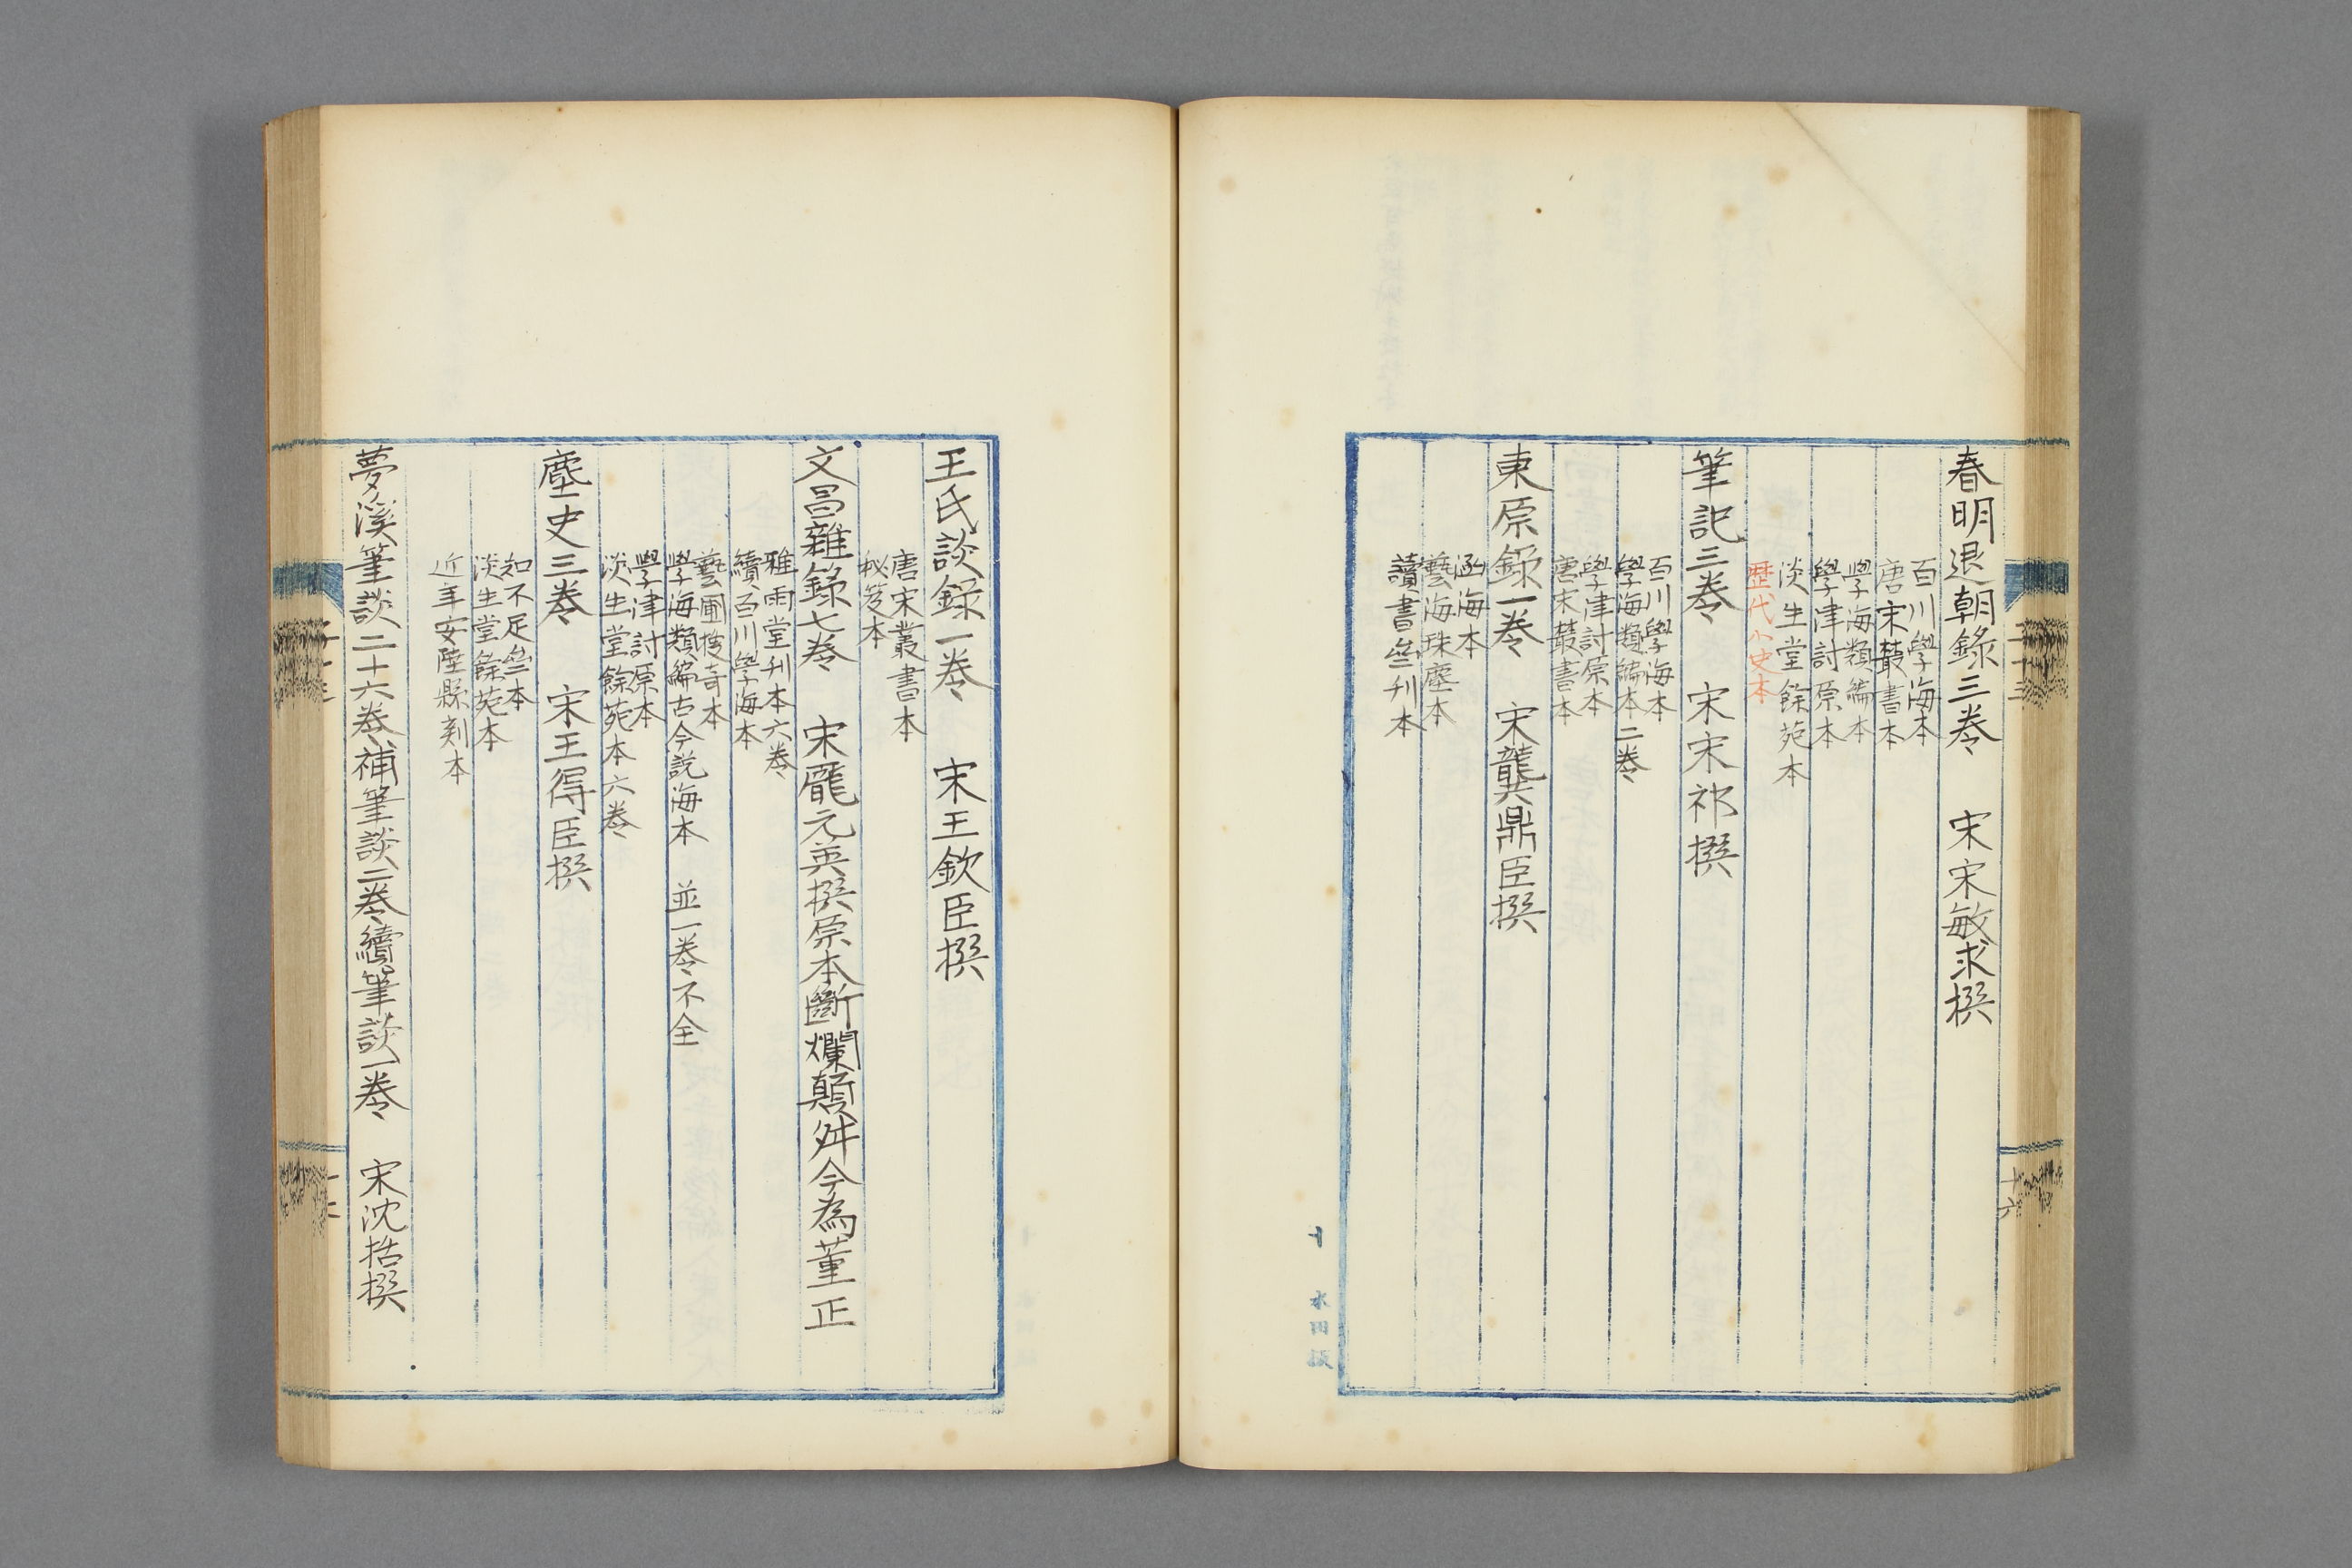 春明退朝錄三卷　宋宋敏求撰
百川學海本
唐宋叢書本
學海類編本
學津討原本
淡生堂餘苑本
歷代小史本
筆記三卷　宋宋祁撰
百川學海本
學海類編本二卷
學津討原本
唐宋叢書本
東原錄一卷　宋龔鼎臣撰
函海本
藝海珠塵本
讀書叢刊本
王氏談錄一卷　宋王欽臣撰
唐宋叢書本
秘笈本
文昌雜錄七卷　宋龐元英撰原本斷爛顛舛今為董正
雅雨堂刊本六卷
續百川學海本
藝圃搜奇本
學海類編古今說海本　並一卷不全
學津討原本
淡生堂餘苑本六卷
麈史三卷　宋王得臣撰
知不足叢本
淡生堂餘苑本
近年安陸縣刻本
夢溪筆談二十六卷補筆談二卷續筆談一卷　宋沈括撰
十六